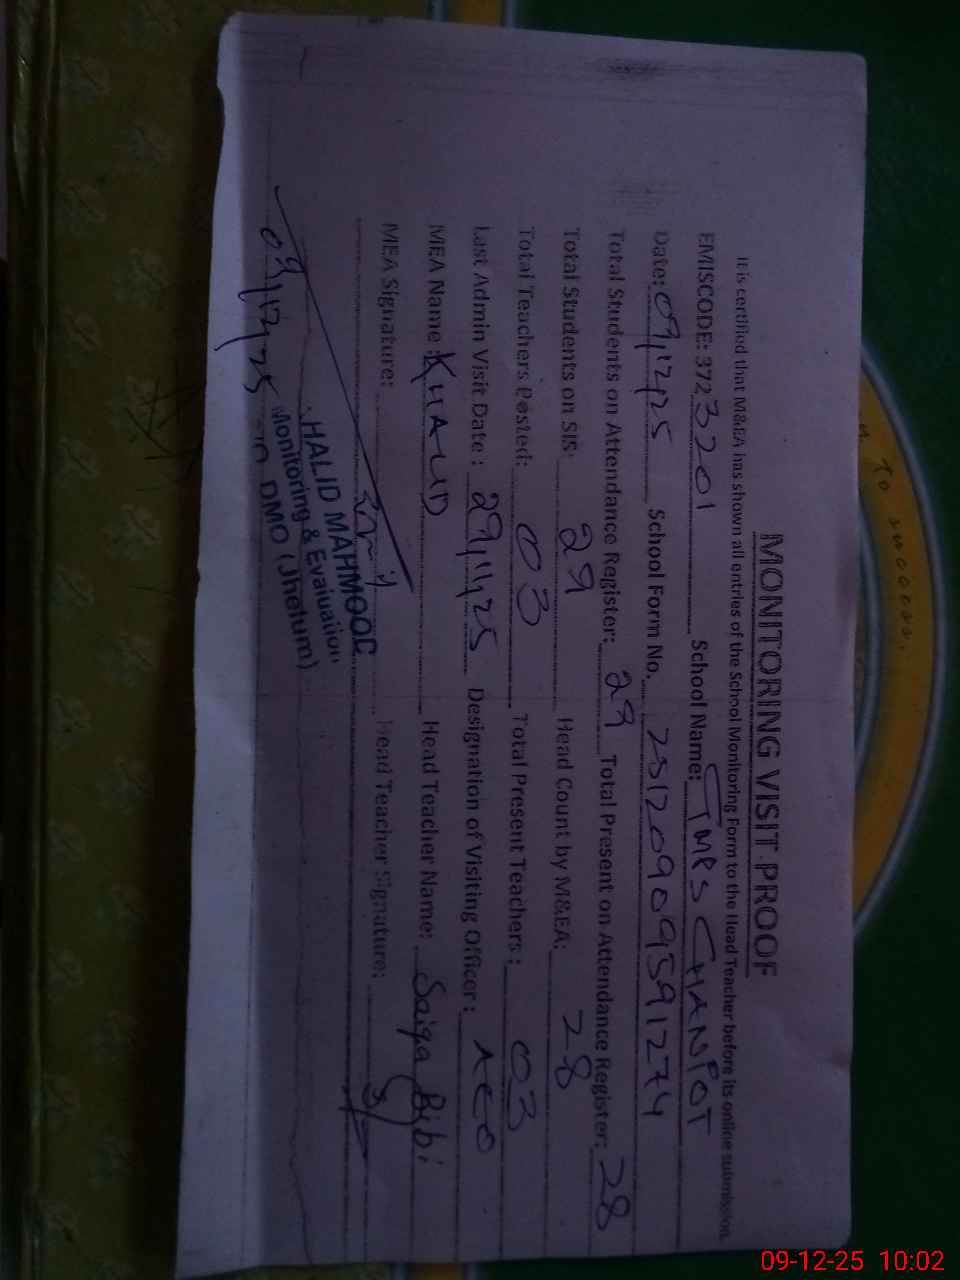 To success.
MONITORING VISIT PROOF
It is certified that M&EA has shown all entries of the School Monitoring Form to the Head Teacher before its online submission.
EMISCODE: 3723201 School Name: GMPS CHANPOT
Date: 09/12/25 School Form No. 25120909591274
Total Students on Attendance Register: 29 Total Present on Attendance Register: 28
Total Students on SIS: 29 Head Count by M&EA: 28
Total Teachers Posted: 03 Total Present Teachers: 03
Last Admin Visit Date: 29/11/25 Designation of Visiting Officer: AEO
MEA Name: KHALID Head Teacher Name: Saiqa Bibi
MEA Signature: Head Teacher Signature:
HALID MAHMOOD
Monitoring & Evaluation
DMO (Jhelum)
09/12/25
09-12-25 10:02